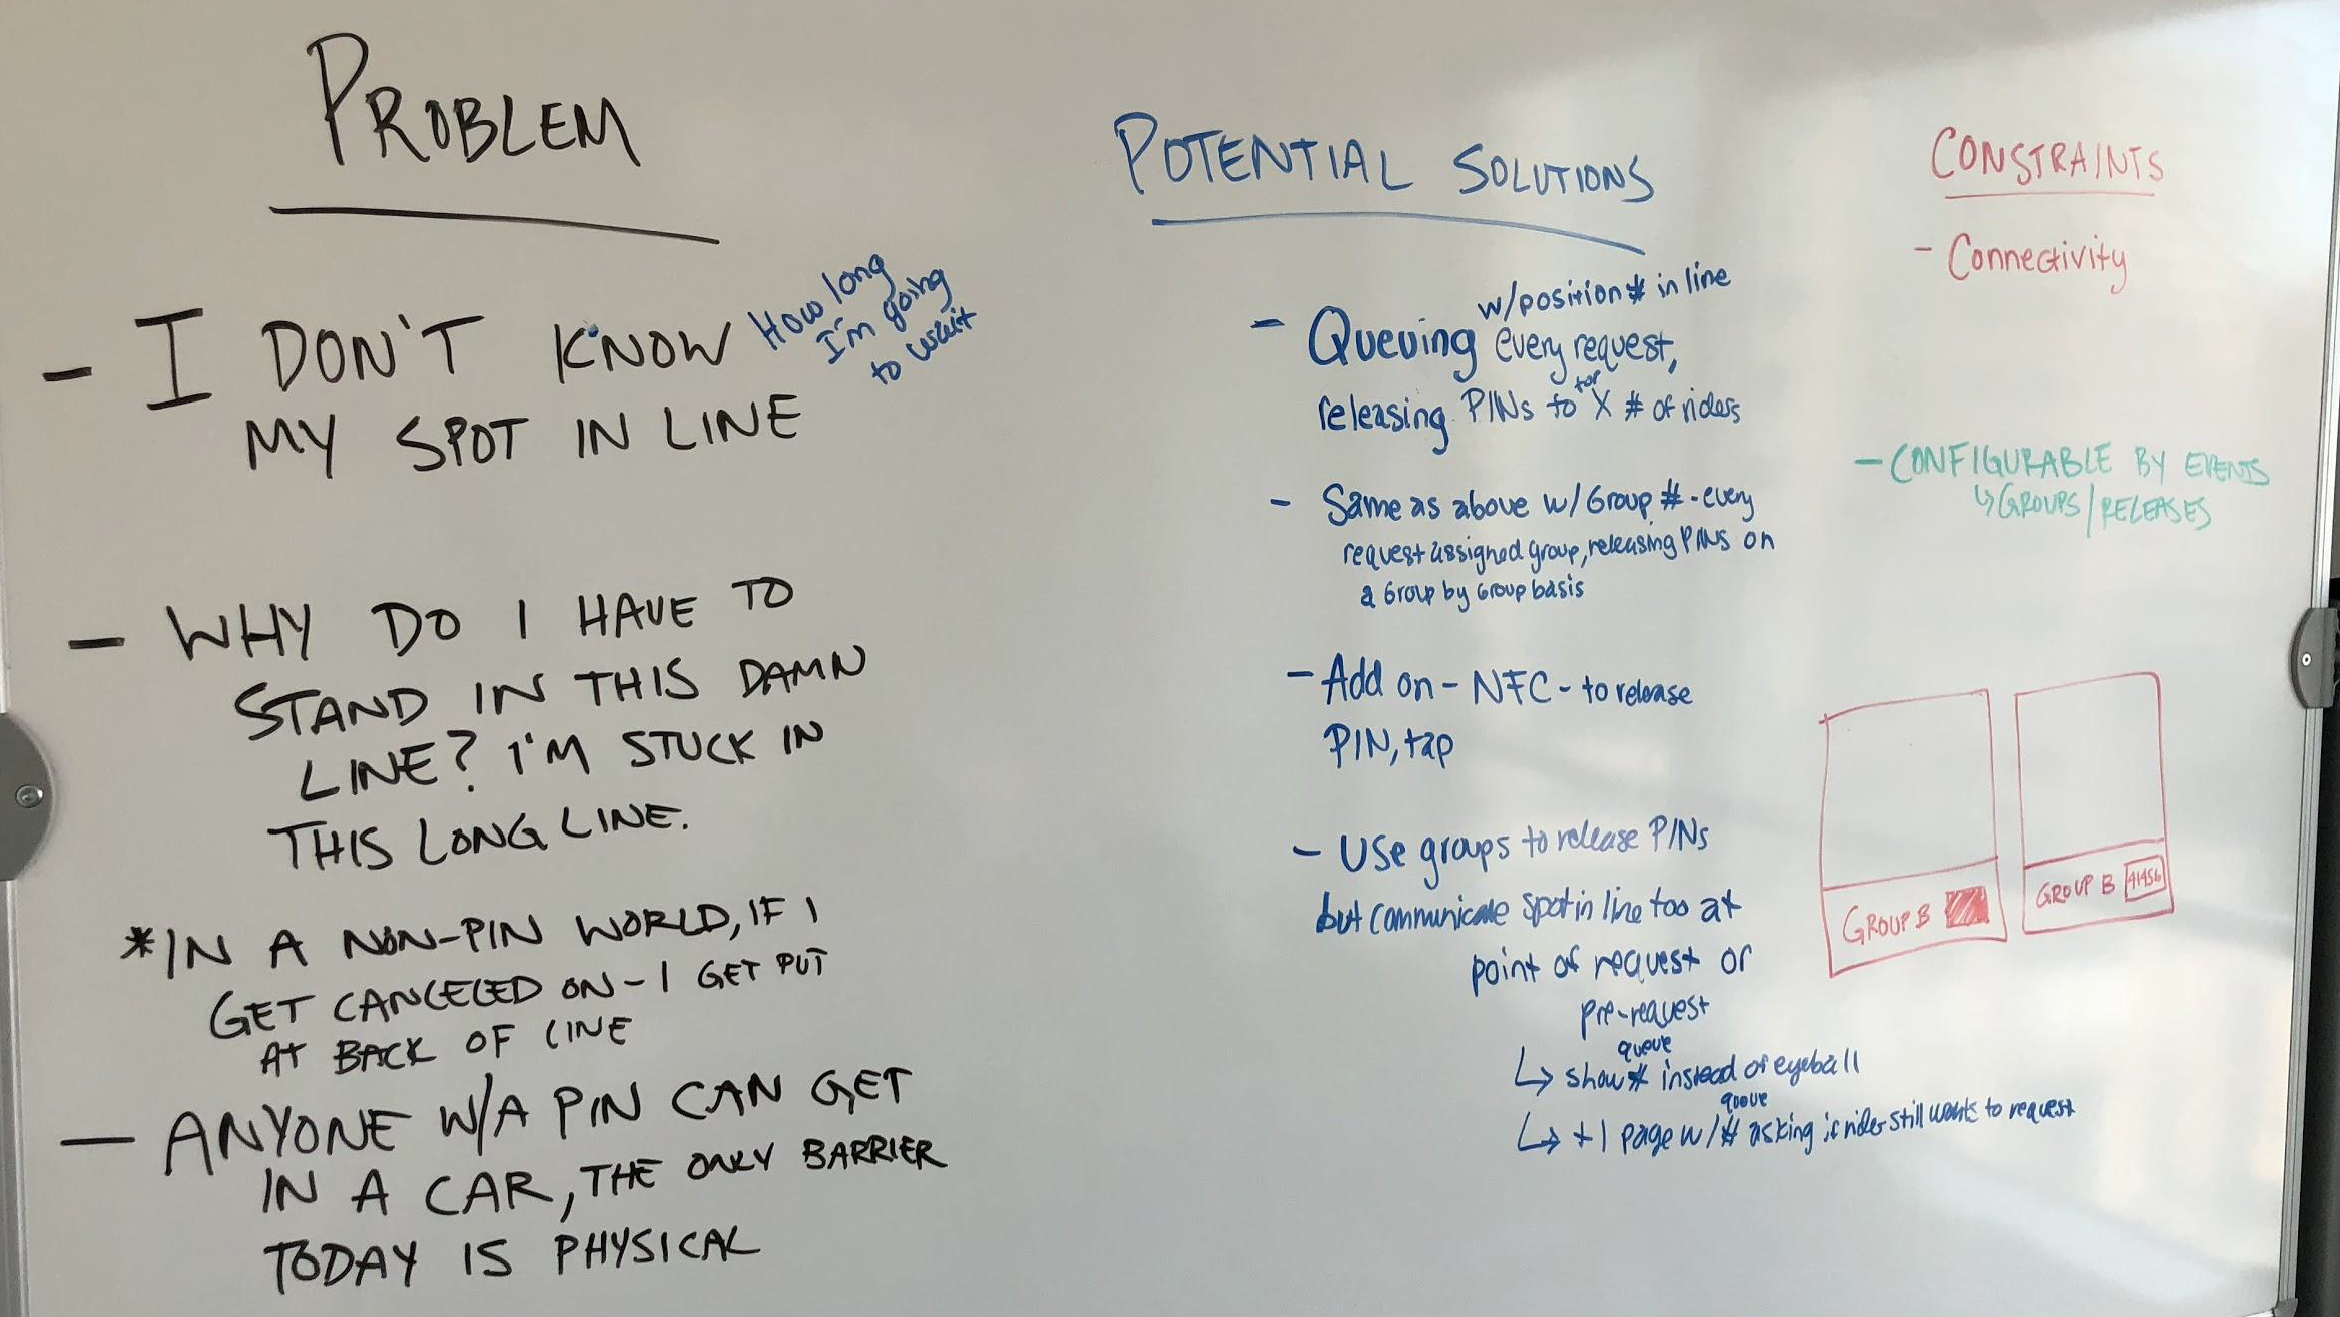 PROBLEM
- I DON'T KNOW
MY SPOT IN LINE
How long
I'm going
to wait
- WHY DO I HAVE TO
STAND IN THIS DAMN
LINE? I'M STUCK IN
THIS LONG LINE.
*IN A NON-PIN WORLD, IF I
GET CANCELED ON - I GET PUT
AT BACK OF LINE
- ANYONE W/A PIN CAN GET
IN A CAR, THE ONLY BARRIER
TODAY IS PHYSICAL
POTENTIAL SOLUTIONS
w/position # in line
- Queuing every request,
for
releasing PINs to X # of riders
- Same as above w/ Group # - every
request assigned group, releasing PINs on
a Group by Group basis
- Add on - NFC - to release
PIN, tap
- Use groups to release PINs
but communicate spot in line too at
point of request or
pre-request
queue
↳ show # instead of eyeball
queue
↳ +1 page w/ # asking if rider still wants to request
CONSTRAINTS
- Connectivity
- CONFIGURABLE BY EVENTS
↳ GROUPS/RELEASES
GROUP B
GROUP B 41456